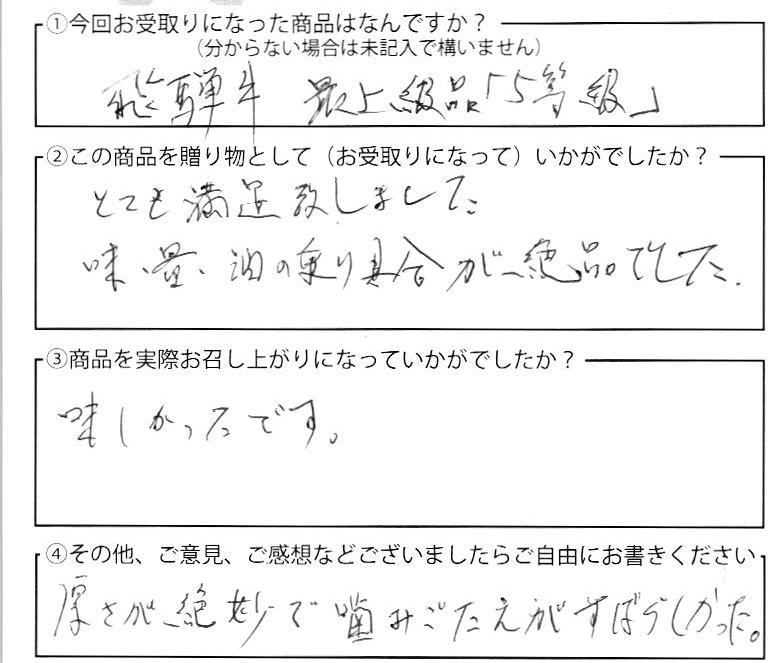 ①今回お受取りになった商品はなんですか？
（分からない場合は未記入で構いません）
飛騨牛 最上級品「5等級」
②この商品を贈り物として（お受取りになって）いかがでしたか？
とても満足致しました
味、量、油の乗り具合が絶品でした.
③商品を実際お召し上がりになっていかがでしたか？
味しかったです。
④その他、ご意見、ご感想などございましたらご自由にお書きください
厚さが絶妙で噛みごたえがすばらしかった。